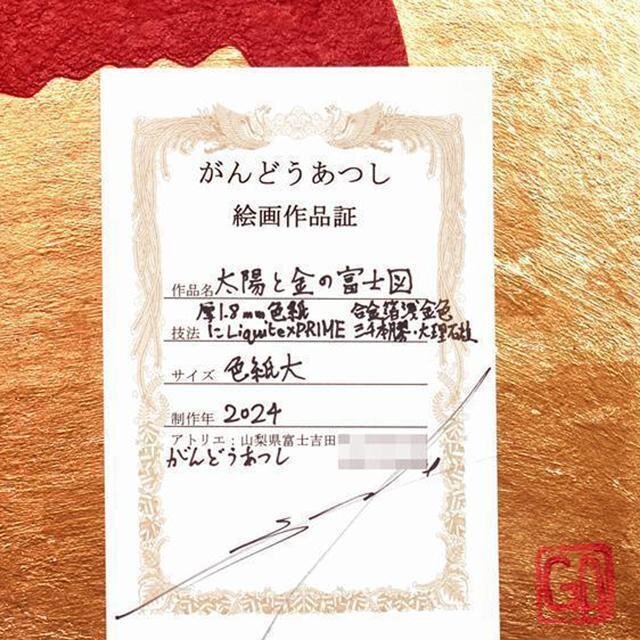 がんどうあつし
絵画作品証
作品名 太陽と金の富士図
厚1.8mm色紙 合金箔淡金色
技法 にLiquitexPRIME 三千本膠・大理石
サイズ 色紙大
制作年 2024
アトリエ：山梨県富士吉田
がんどうあつし